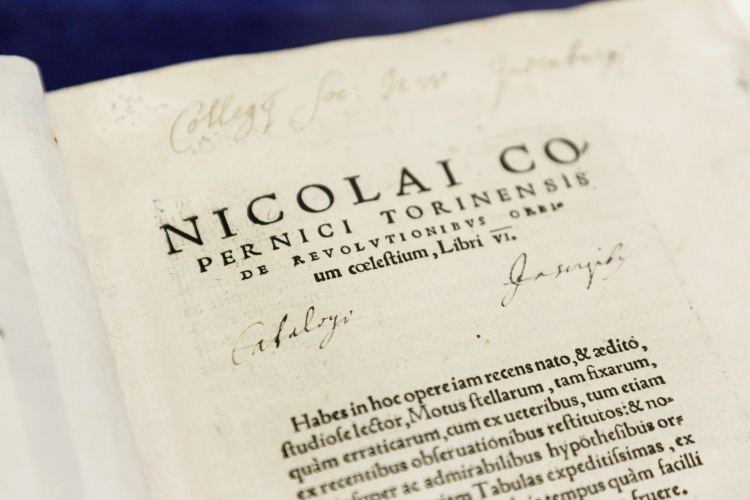 Collegij Soc: Jesu Judenburgi
NICOLAI CO
PERNICI TORINENSIS
DE REVOLVTIONIBVS ORBI-
um cœleſtium, Libri VI.
Catalogo Inscriptus
Habes in hoc opere iam recens nato, & ædito,
ſtudioſe lector, Motus ſtellarum, tam fixarum,
quàm erraticarum, cum ex ueteribus, tum etiam
ex recentibus obſeruationibus reſtitutos: & no-
uis inſuper ac admirabilibus hypotheſibus or-
Tabulas expeditiſsimas, ex
tempus quàm facilli
fruere.